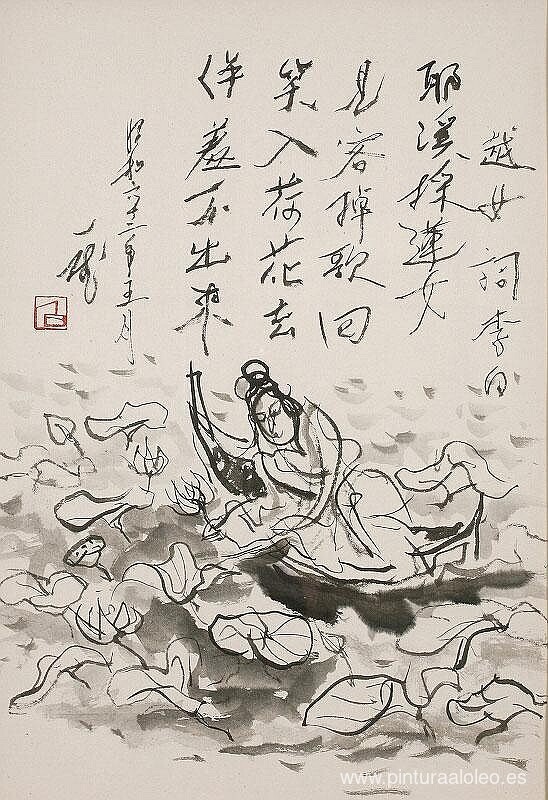 越女詞 李白
耶溪採蓮女
見客棹歌回
笑入荷花去
佯羞不出來
昭和六十二年五月
一
www.pinturaaloleo.es